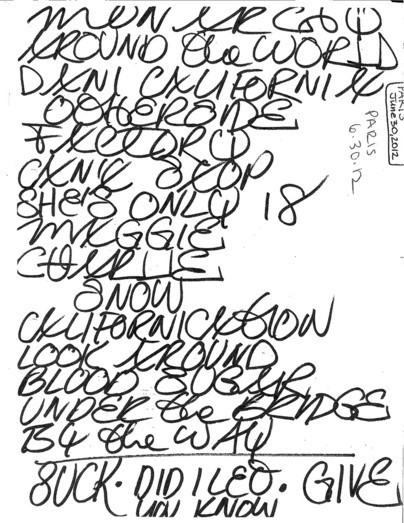 MONARCHY
AROUND the WORLD
DANI CALIFORNIA
OTHERSIDE
FACTORY
CANT STOP
SHE'S ONLY 18
MAGGIE
CHARLIE
SNOW
CALIFORNICATION
LOOK AROUND
BLOOD SUGAR
UNDER the BRIDGE
BY the WAY
SUCK. DID I GIVE
YOU KNOW
PARIS
June 30, 2012
PARIS
6.30.12